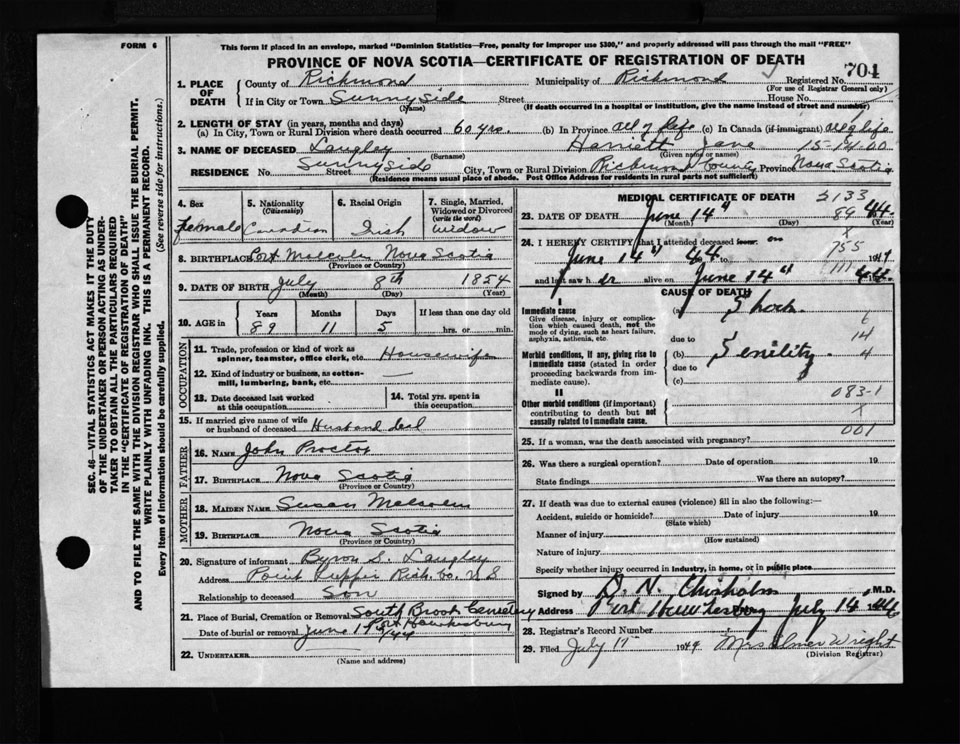 FORM 6
This form if placed in an envelope, marked "Dominion Statistics—Free, penalty for improper use $300," and properly addressed will pass through the mail "FREE"
PROVINCE OF NOVA SCOTIA—CERTIFICATE OF REGISTRATION OF DEATH
1. PLACE OF DEATH County of Richmond Municipality of Richmond Registered No. 704
(For use of Registrar General only)
If in City or Town Sunny Side Street House No.
(Name) (If death occurred in a hospital or institution, give the name instead of street and number)
2. LENGTH OF STAY (in years, months and days)
(a) In City, Town or Rural Division where death occurred 60 yrs. (b) In Province all of life (c) In Canada (if immigrant) all of life
3. NAME OF DECEASED Langley Harriett Jane 15-141-00
(Surname) (Given name or names)
RESIDENCE No. Sunny Side Street City, Town or Rural Division Richmond County Province Nova Scotia
(Residence means usual place of abode. Post Office Address for residents in rural parts not sufficient)
4. Sex Female
5. Nationality (Citizenship) Canadian
6. Racial Origin Irish
7. Single, Married, Widowed or Divorced (write the word) Widow
8. BIRTHPLACE Port Malcolm Nova Scotia
(Province or Country)
9. DATE OF BIRTH July 8th 1854
(Month) (Day) (Year)
10. AGE in Years 89 Months 11 Days 5 If less than one day old hrs. or min.
OCCUPATION
11. Trade, profession or kind of work as spinner, teamster, office clerk, etc. Housewife
12. Kind of industry or business, as cotton-mill, lumbering, bank, etc. —
13. Date deceased last worked at this occupation
14. Total yrs. spent in this occupation
15. If married give name of wife or husband of deceased Husband dead
FATHER
16. NAME John Proctor
17. BIRTHPLACE Nova Scotia
(Province or Country)
MOTHER
18. MAIDEN NAME Susan Malcolm
19. BIRTHPLACE Nova Scotia
(Province or Country)
20. Signature of informant Byron S. Langley
Address Point Tupper Rich. Co. N S
Relationship to deceased Son
21. Place of Burial, Cremation or Removal South Brook Cemetery
Port Hawkesbury
Date of burial or removal June 1 /44
22. UNDERTAKER
(Name and address)
MEDICAL CERTIFICATE OF DEATH
2133
23. DATE OF DEATH June 14" 44
(Month) (Day)
89
24. I HEREBY CERTIFY that I attended deceased on
June 14" 44 to 19
X
755
111
and last saw alive on June 14" 44
CAUSE OF DEATH
I
Immediate cause
Give disease, injury or complication which caused death, not the mode of dying, such as heart failure, asphyxia, asthenia, etc.
(a) Shock
6
due to 14
Morbid conditions, if any, giving rise to immediate cause (stated in order proceeding backwards from immediate cause).
(b) Senility 4
due to
(c)
083-1
II
Other morbid conditions (if important) contributing to death but not causally related to immediate cause.
X
001
25. If a woman, was the death associated with pregnancy?
26. Was there a surgical operation? Date of operation 19
State findings Was there an autopsy?
27. If death was due to external causes (violence) fill in also the following:—
Accident, suicide or homicide? Date of injury 19
(State which)
Manner of injury
(How sustained)
Nature of injury
Specify whether injury occurred in industry, in home, or in public place
Signed by D. N. Chisholm M.D.
Address Port Hawkesbury July 14 44
28. Registrar's Record Number
29. Filed July 17 1944 Mrs Elmer Wright
(Division Registrar)
SEC. 46—VITAL STATISTICS ACT MAKES IT THE DUTY
OF THE UNDERTAKER OR PERSON ACTING AS UNDER-
TAKER TO OBTAIN ALL THE PARTICULARS REQUIRED
IN THE "CERTIFICATE OF REGISTRATION OF DEATH"
AND TO FILE THE SAME WITH THE DIVISION REGISTRAR WHO SHALL ISSUE THE BURIAL PERMIT.
WRITE PLAINLY WITH UNFADING INK. THIS IS A PERMANENT RECORD.
Every item of information should be carefully supplied. (See reverse side for instructions.)